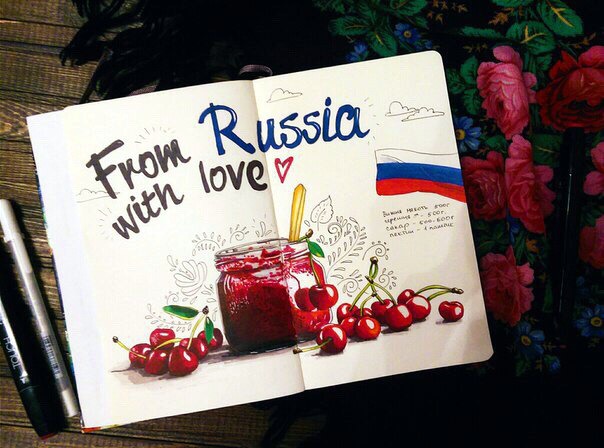 From Russia
with love
Вишня мякоть 500г
черешня - 500г.
сахар - 500-600г
пектин - 1 пакетик